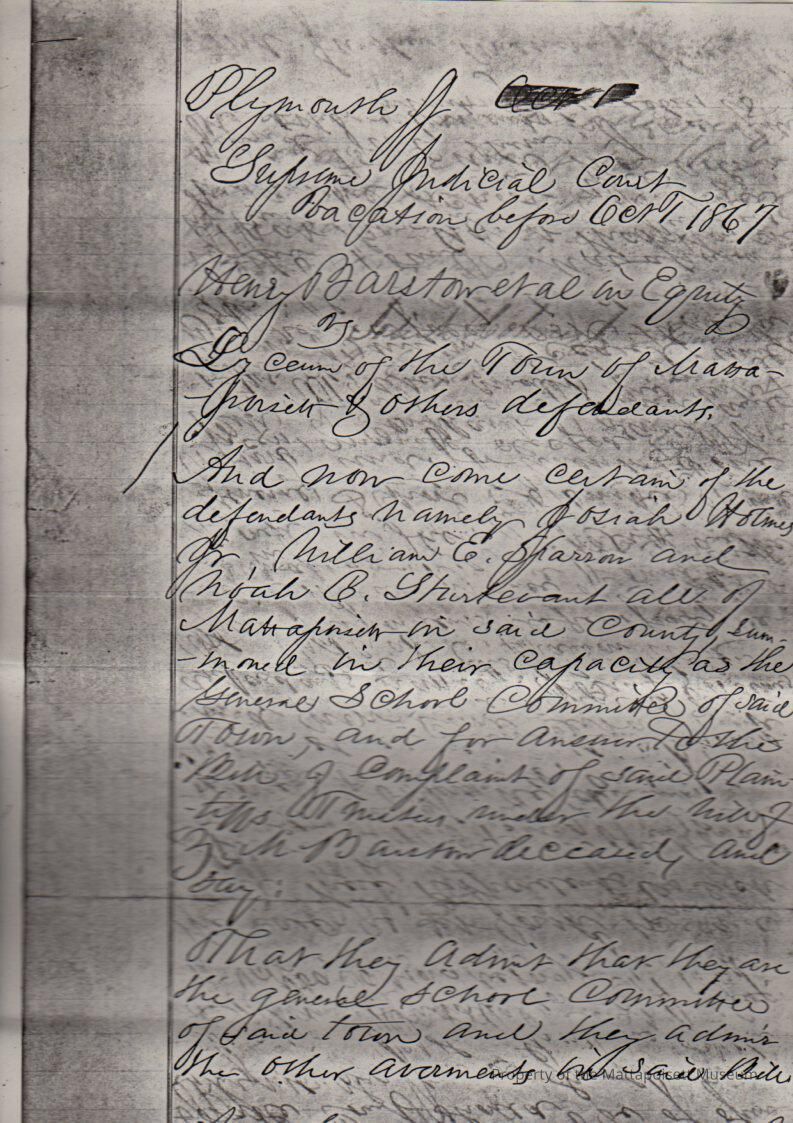 Plymouth ss
Supreme Judicial Court
Vacation before Oct T. 1867
Henry Barstow et al in Equity
vs
Lyceum of the Town of Matta-
-poisett & others defendants.
And now come certain of the
defendants namely Josiah Holmes
Jr, William E. Sparrow and
Noah C. Sturtevant all of
Mattapoisett in said County, sum-
-moned in their capacity as the
General School Committee of said
Town, and for answer to the
Bill of Complaint of said Plain-
-tiffs Trustees under the will of
Barstow deceased, and
say:
That they admit that they are
the general school committee
of said town and they admit
the other averments in said Bill
Property of the Mattapoisett Museum